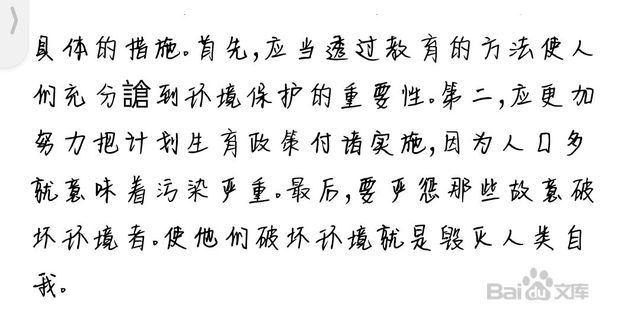 具体的措施。首先,应当透过教育的方法使人
们充分謒到环境保护的重要性。第二,应更加
努力把计划生育政策付诸实施,因为人口多
就意味着污染严重。最后,要严惩那些故意破
坏环境者。使他们破坏环境就是毁灭人类自
我。
Baidu文库